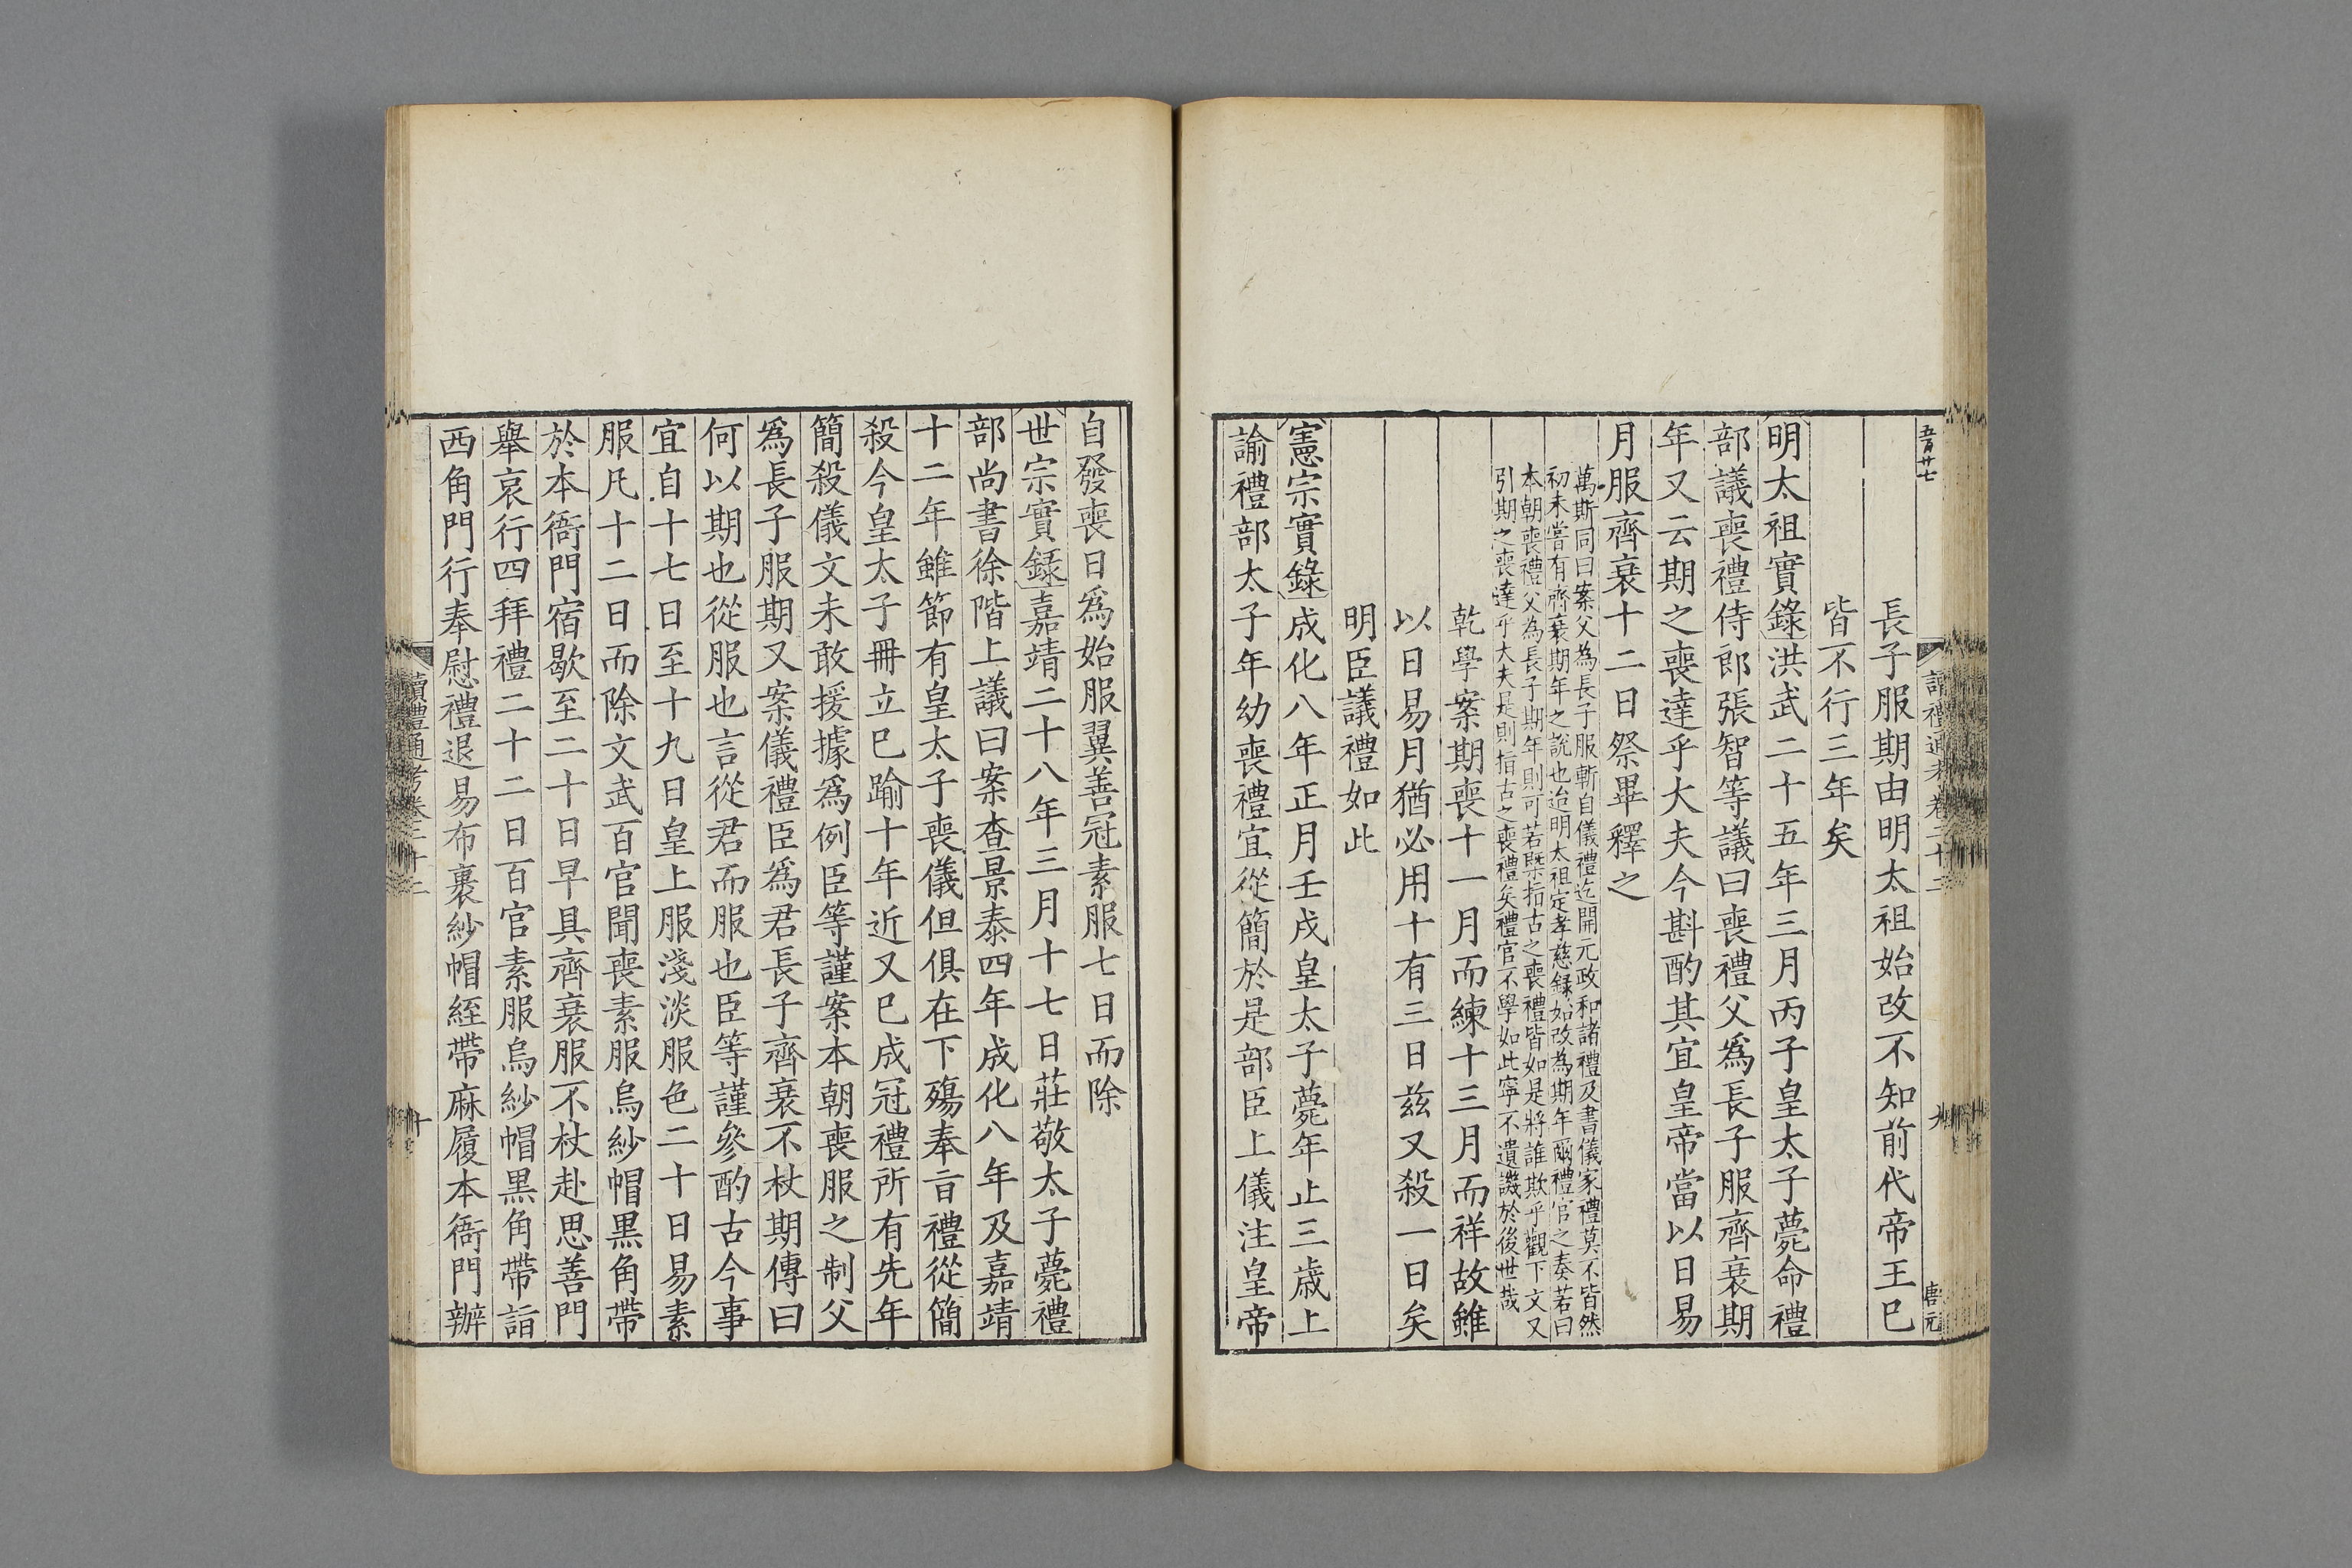 五百廿七
讀禮通考卷二十二
九
唐元
長子服期由明太祖始改不知前代帝王巳
皆不行三年矣
明太祖實錄洪武二十五年三月丙子皇太子薨命禮
部議喪禮侍郎張智等議曰喪禮父爲長子服齊衰期
年又云期之喪達乎大夫今斟酌其宜皇帝當以日易
月服齊衰十二日祭畢釋之
萬斯同曰案父為長子服斬自儀禮迄開元政和諸禮及書儀家禮莫不皆然
初未嘗有齊衰期年之說也迨明太祖定孝慈錄始改為期年爾禮官之奏若曰
本朝喪禮父為長子期年則可若槩指古之喪禮皆如是將誰欺乎觀下文又
引期之喪達乎大夫是則指古之喪禮矣禮官不學如此寧不遺譏於後世哉
乾學案期喪十一月而練十三月而祥故雖
以日易月猶必用十有三日茲又殺一日矣
明臣議禮如此
憲宗實錄成化八年正月壬戌皇太子薨年止三歲上
諭禮部太子年幼喪禮宜從簡於是部臣上儀注皇帝
自發喪日爲始服翼善冠素服七日而除
世宗實錄嘉靖二十八年三月十七日莊敬太子薨禮
部尚書徐階上議曰案查景泰四年成化八年及嘉靖
十二年雖節有皇太子喪儀但俱在下殤奉旨禮從簡
殺今皇太子冊立巳踰十年近又巳成冠禮所有先年
簡殺儀文未敢援據爲例臣等謹案本朝喪服之制父
爲長子服期又案儀禮臣爲君長子齊衰不杖期傳曰
何以期也從服也言從君而服也臣等謹參酌古今事
宜自十七日至十九日皇上服淺淡服色二十日易素
服凡十二日而除文武百官聞喪素服烏紗帽黑角帶
於本衙門宿歇至二十日早具齊衰服不杖赴思善門
舉哀行四拜禮二十二日百官素服烏紗帽黑角帶詣
西角門行奉慰禮退易布裹紗帽絰帶麻履本衙門辦
讀禮通考卷二十二
十